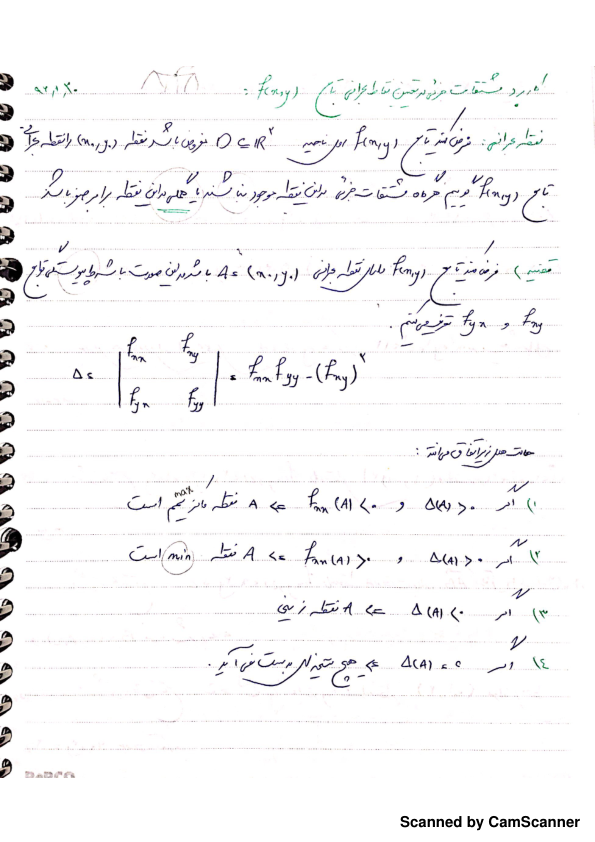 کاربرد مشتقات جزئی در تعیین نقاط بحرانی تابع f(x,y) :
نقطه بحرانی: فرض کنید تابع f(x,y) روی ناحیه D ⊆ IR² معین باشد نقطه (x₀,y₀) را نقطه بحرانی
تابع f(x,y) گوییم هرگاه مشتقات جزئی در این نقطه موجود نباشند یا همگی در این نقطه برابر صفر باشد
قضیه) فرض کنید تابع f(x,y) دارای نقطه بحرانی A = (x₀,y₀) باشد در این صورت با شرط پیوستگی توابع
fxy و fyx تعریف می‌کنیم .
Δ = | fxx fxy | = fxx fyy - (fxy)²
| fyx fyy |
حالت های زیر اتفاق می‌افتد :
۱) اگر Δ(A) > ۰ و fxx (A) < ۰ => A نقطه ماکزیمم max است
۲) اگر Δ(A) > ۰ و fxx (A) > ۰ => A نقطه min است
۳) اگر Δ(A) < ۰ => A نقطه زینی
۴) اگر Δ(A) = 0 => هیچ نتیجه ای بدست نمی آید .
Scanned by CamScanner